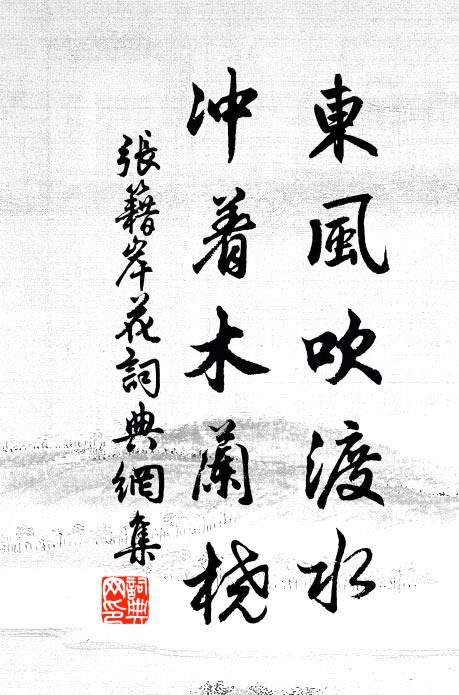 東風吹渡水
冲着木蘭橈
張籍岸花詞典網集
詞典